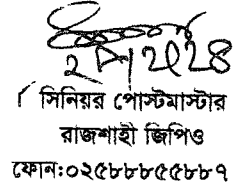 সিনিয়র পোস্টমাস্টার
রাজশাহী জিপিও
ফোন:০২৫৮৮৮৫৫৮৮৭